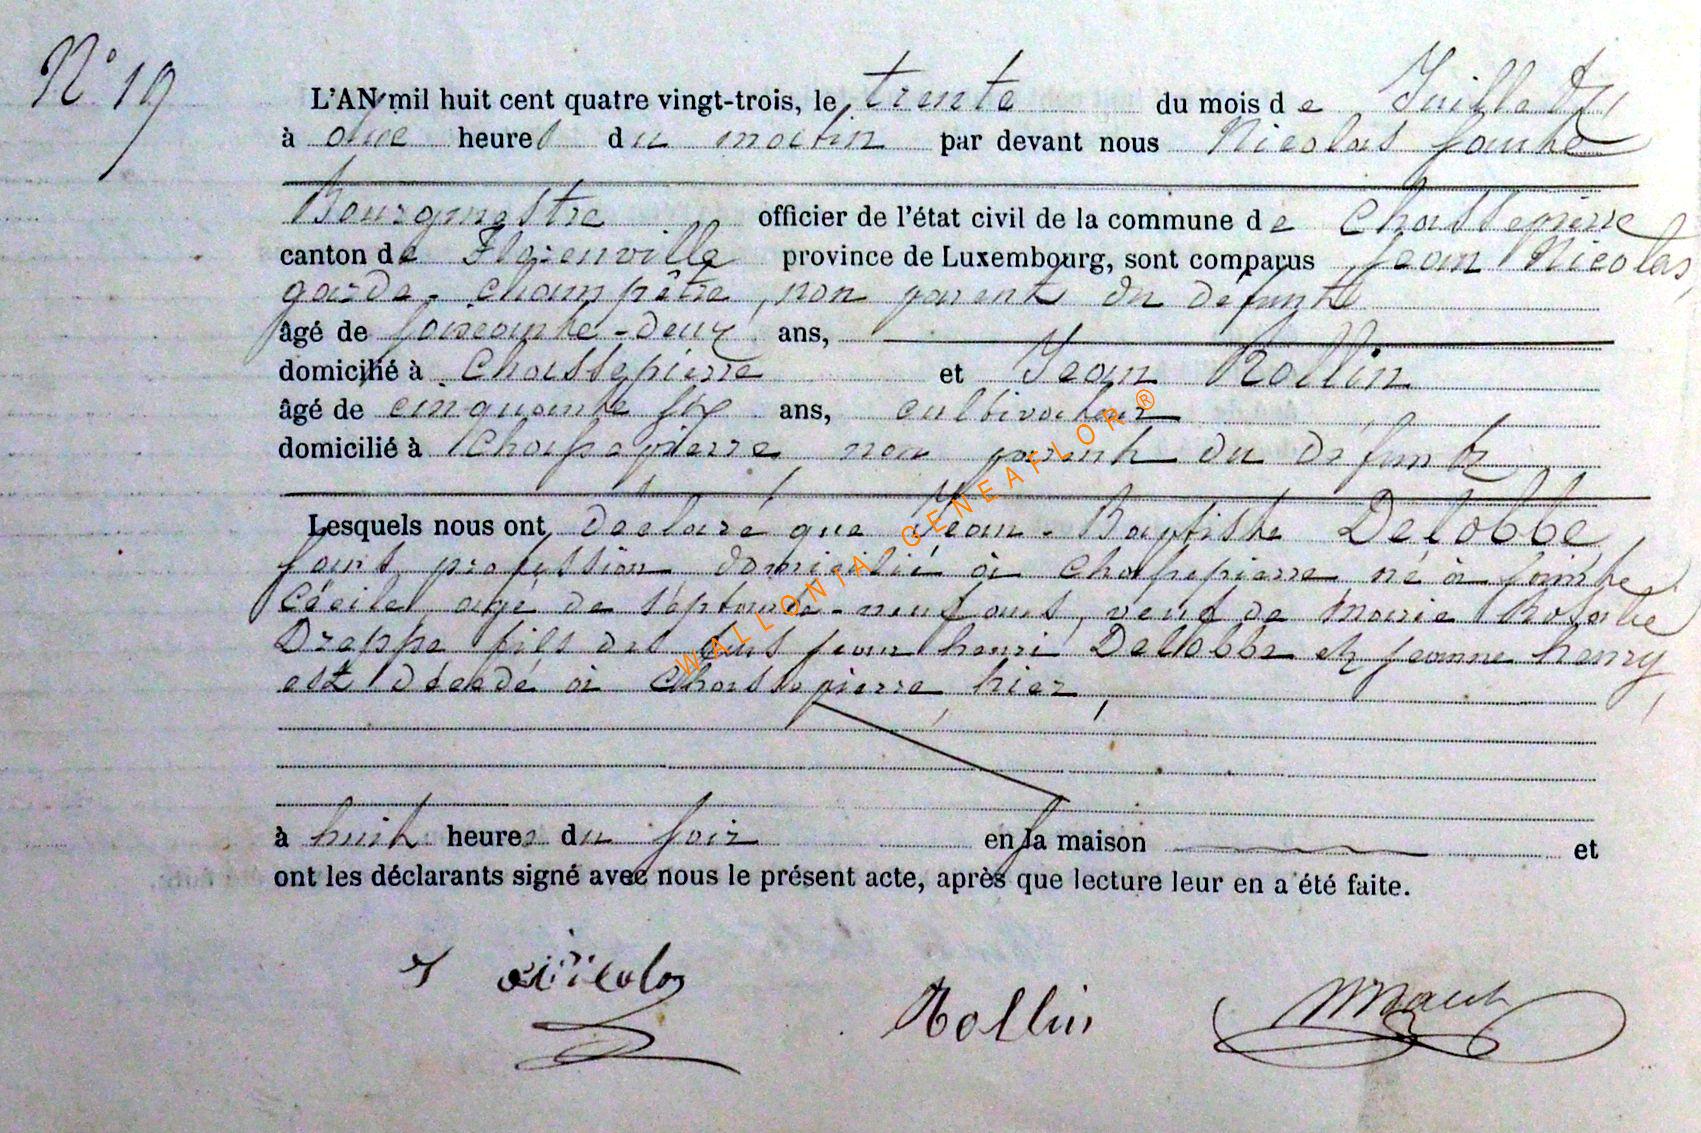 N° 19
L'AN mil huit cent quatre vingt-trois, le trente du mois de Juillet,
à onze heures du matin par devant nous Nicolas
Bourgmestre officier de l'état civil de la commune de Chassepierre
canton de Florenville province de Luxembourg, sont comparus Jean Nicolas,
garde-champêtre, non parent du defunt
âgé de soixante-deux ans,
domicilié à Chassepierre et Jean Rollin
âgé de cinquante six ans, cultivateur
domicilié à Chassepierre, non parent du defunt
Lesquels nous ont declaré que Jean-Baptiste Delobbe,
sans profession domicilié à Chassepierre né à Sainte
Cécile, agé de septante-neuf ans, veuf de Marie Rosalie
Dreppe fils des jean henri Delobbe et jeanne henry,
est décédé à Chassepierre, hier,
à huit heures du soir en sa maison et
ont les déclarants signé avec nous le présent acte, après que lecture leur en a été faite.
J Nicolas
Rollin
WALLONIA GENEAFLOR ®